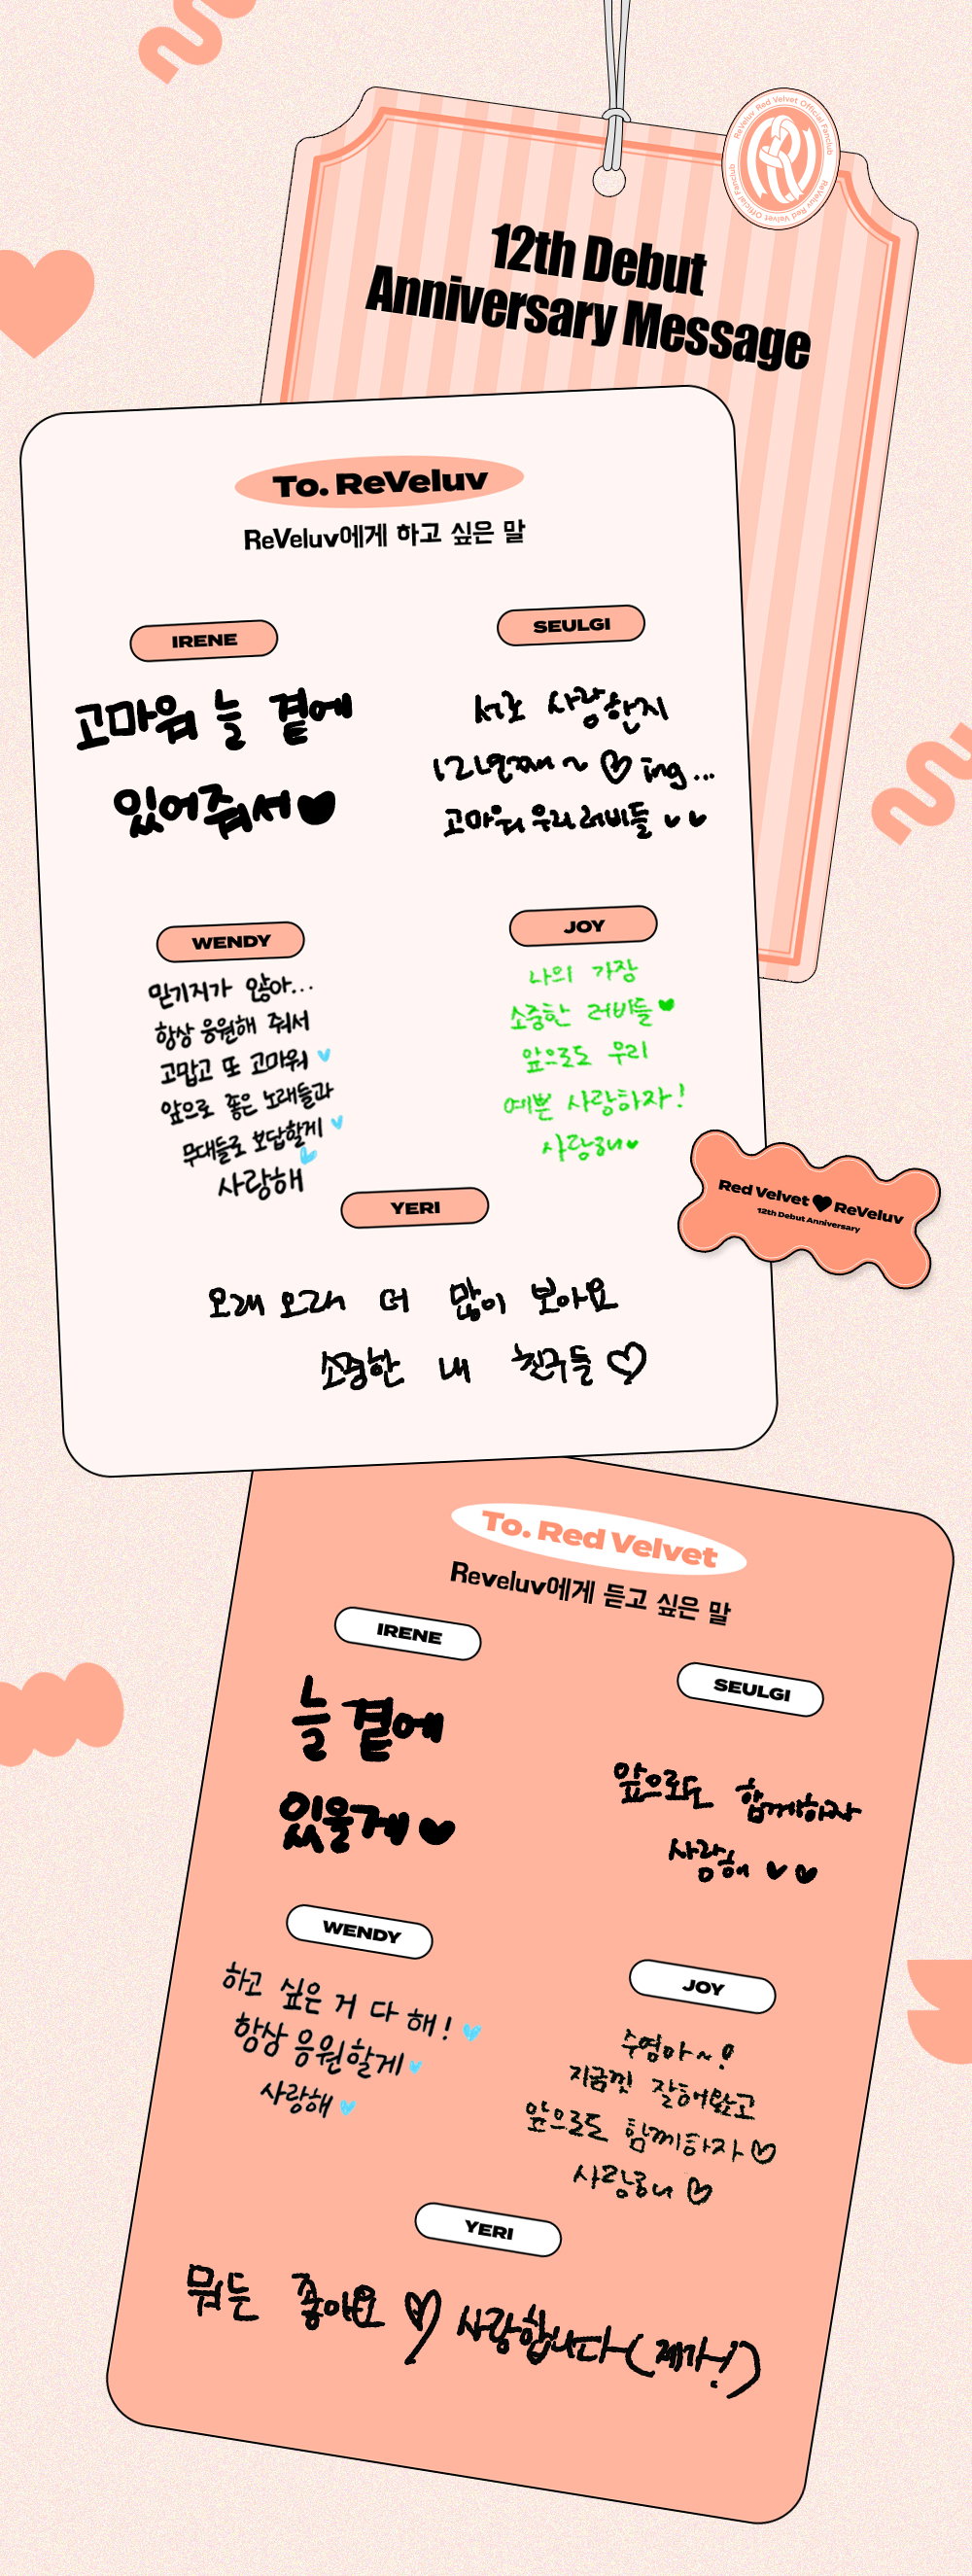 ReVeluv Red Velvet Official Fanclub
ReVeluv Red Velvet Official Fanclub
12th Debut
Anniversary Message
To. ReVeluv
ReVeluv에게 하고 싶은 말
IRENE
고마워 늘 곁에
있어줘서♥
SEULGI
서로 사랑한지
12년째~ ♡ing...
고마워 우리 러비들 ♥♥
WENDY
믿기지가 않아...
항상 응원해 줘서
고맙고 또 고마워 ♥
앞으로 좋은 노래들과
무대들로 보답할게 ♥
사랑해 ♥
JOY
나의 가장
소중한 러비들♥
앞으로도 우리
예쁜 사랑하자!
사랑해♥
YERI
오래 오래 더 많이 보아요
소중한 내 친구들♡
Red Velvet♥ReVeluv
12th Debut Anniversary
To. Red Velvet
Reveluv에게 듣고 싶은 말
IRENE
늘 곁에
있을게♥
SEULGI
앞으로도 함께하자
사랑해 ♥♥
WENDY
하고 싶은 거 다 해! ♥
항상 응원할게 ♥
사랑해 ♥
JOY
수영아~!
지금껏 잘해왔고
앞으로도 함께하자♡
사랑해 ♡
YERI
뭐든 좋아요 ♡ 사랑합니다(제가!)